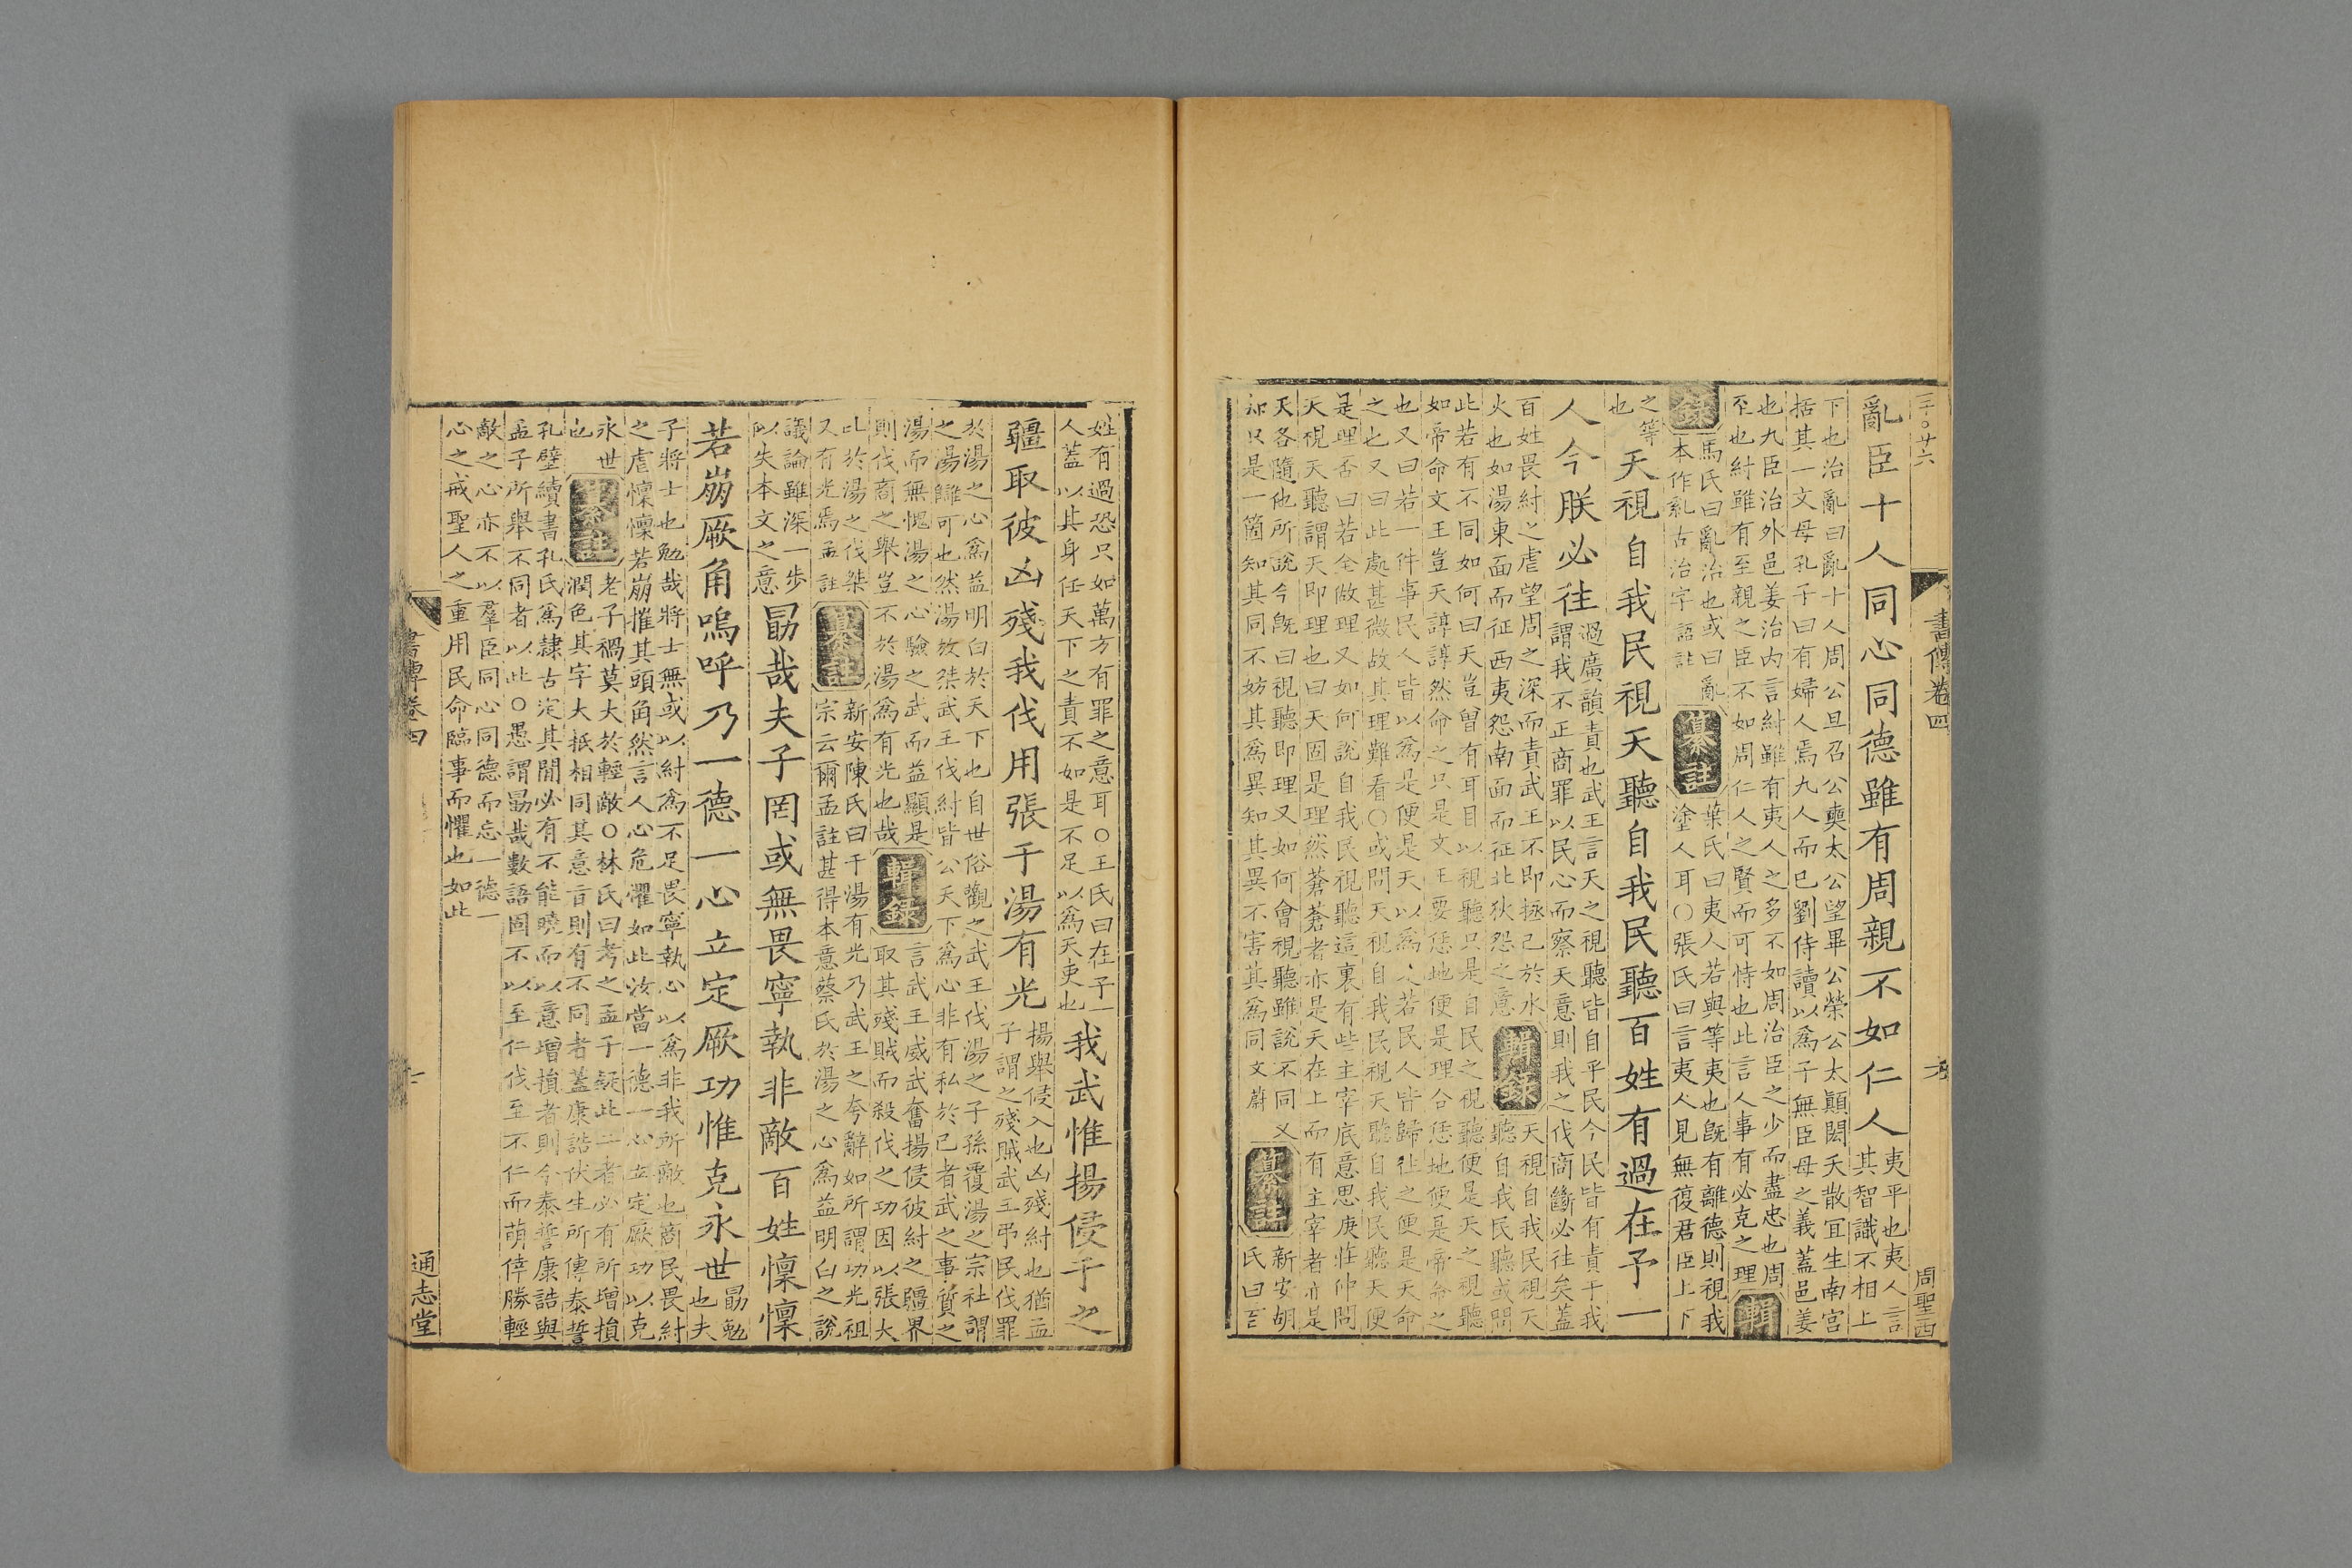 三〇廿六
書傳卷四
周聖西
亂臣十人同心同德雖有周親不如仁人
夷平也夷人言
其智識不相上
下也治亂曰亂十人周公旦召公奭太公望畢公榮公太顛閎夭散宜生南宮
括其一文母孔子曰有婦人焉九人而已劉侍讀以爲子無臣母之義蓋邑姜
也九臣治外邑姜治内言紂雖有夷人之多不如周治臣之少而盡忠也周
至也紂雖有至親之臣不如周仁人之賢而可恃也此言人事有必克之理
輯
錄
馬氏曰亂治也或曰亂
本作乿古治字語註
纂註
葉氏曰夷人若與等夷也旣有離德則視我
塗人耳〇張氏曰言夷人見無復君臣上下
之等
也
天視自我民視天聽自我民聽百姓有過在予一
人今朕必往
過廣韻責也武王言天之視聽皆自乎民今民皆有責于我
謂我不正商罪以民心而察天意則我之伐商斷必往矣蓋
百姓畏紂之虐望周之深而責武王不即拯己於水
火也如湯東面而征西夷怨南面而征北狄怨之意
輯錄
天視自我民視天
聽自我民聽或問
此若有不同如何曰天豈曽有耳目以視聽只是自民之視聽便是天之視聽
如帝命文王豈天諄諄然命之只是文王要恁地便是理合恁地便是帝命之
也又曰若一件事民人皆以爲是便是天以爲是若民人皆歸往之便是天命
之也又曰此處甚微故其理難看〇或問天視自我民視天聽自我民聽天便
是理否曰若全做理又如何說自我民視聽這裏有些主宰底意思庚莊仲問
天視天聽謂天即理也曰天固是理然蒼蒼者亦是天在上而有主宰者亦是
天各隨他所說今旣曰視聽即理又如何會視聽雖說不同又
却只是一箇知其同不妨其爲異知其異不害其爲同文蔚
纂註
新安胡
氏曰百
姓有過恐只如萬方有罪之意耳〇王氏曰在予一
人蓋以其身任天下之責不如是不足以爲天吏也
我武惟揚侵于之
疆取彼凶殘我伐用張于湯有光
揚舉侵入也凶殘紂也猶孟
子謂之殘賊武王弔民伐罪
於湯之心爲益明白於天下也自世俗觀之武王伐湯之子孫覆湯之宗社謂
之湯讎可也然湯放桀武王伐紂皆公天下爲心非有私於已者武之事質之
湯而無愧湯之心驗之武而益顯是
則伐商之舉豈不於湯爲有光也哉
輯錄
言武王威武奮揚侵彼紂之疆界
取其殘賊而殺伐之功因以張大
比於湯之伐桀
又有光焉孟註
纂註
新安陳氏曰于湯有光乃武王之夸辭如所謂功光祖
宗云爾孟註甚得本意蔡氏於湯之心爲益明白之說
議論雖深一步
以失本文之意
勗哉夫子罔或無畏寧執非敵百姓懍懍
若崩厥角嗚呼乃一德一心立定厥功惟克永世
勗勉
也夫
子將士也勉哉將士無或以紂爲不足畏寧執心以爲非我所敵也商民畏紂
之虐懍懍若崩摧其頭角然言人心危懼如此汝當一德一心立定厥功以克
永世
也
纂註
老子禍莫大於輕敵〇林氏曰考之孟子疑此二者必有所增損
潤色其字大抵相同其意言則有不同者蓋康誥伏生所傳泰誓
孔壁續書孔氏爲隷古定其閒必有不能曉而以意增損者則今泰誓康誥與
孟子所舉不同者以此〇愚謂勗哉數語固不以至仁伐至不仁而萌倖勝輕
敵之心亦不以羣臣同心同德而忘一德一
心之戒聖人之重用民命臨事而懼也如此
書傳卷四
通志堂